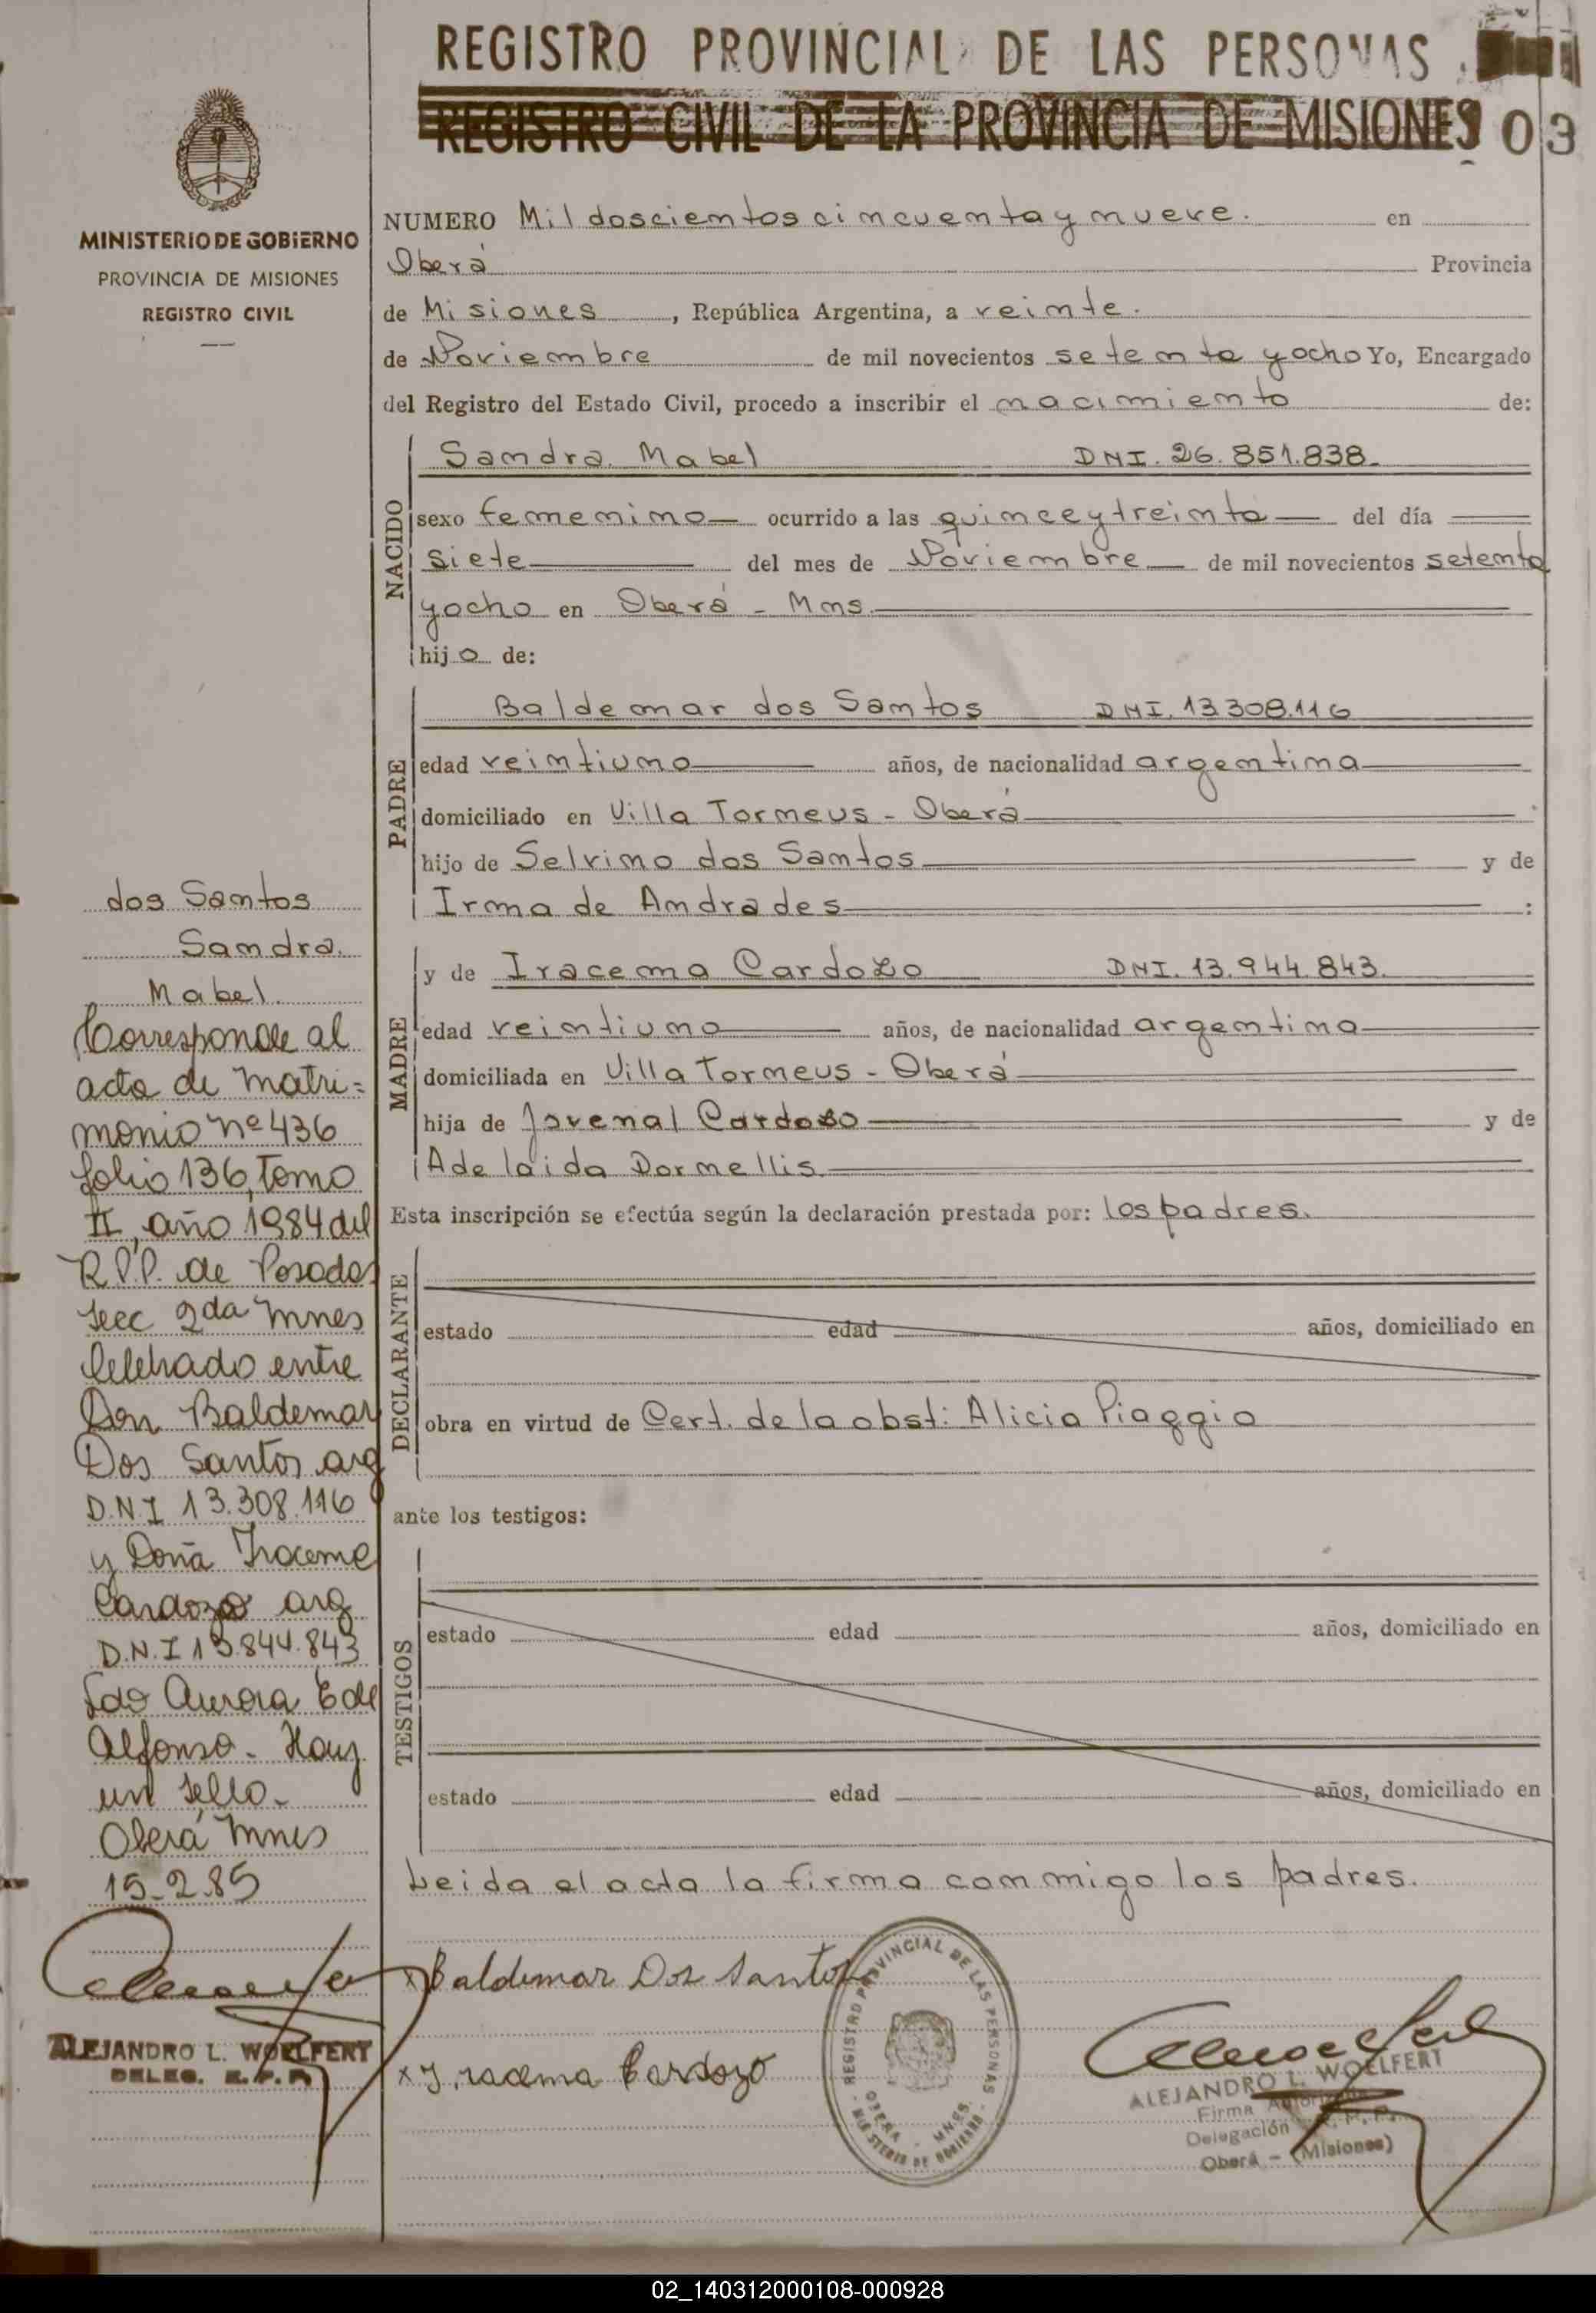 REGISTRO PROVINCIAL DE LAS PERSONAS
REGISTRO CIVIL DE LA PROVINCIA DE MISIONES
03
MINISTERIO DE GOBIERNO
PROVINCIA DE MISIONES
REGISTRO CIVIL
NUMERO Mil doscientos cincuenta y nueve. en
Oberá Provincia
de Misiones, República Argentina, a veinte.
de Noviembre de mil novecientos setenta y ocho Yo, Encargado
del Registro del Estado Civil, procedo a inscribir el nacimiento de:
NACIDO
Sandra Mabel DNI. 26.851.838.
sexo femenino ocurrido a las quince y treinta del día
siete del mes de Noviembre de mil novecientos setenta
y ocho en Oberá - Mns.
hijo de:
PADRE
Baldemar dos Santos DNI. 13.308.116
edad veintiuno años, de nacionalidad argentina
domiciliado en Villa Torneus - Oberá
hijo de Selvino dos Santos y de
Irma de Andrades :
MADRE
y de Iracema Cardozo DNI. 13.944.843.
edad veintiuno años, de nacionalidad argentina
domiciliada en Villa Torneus - Oberá
hija de Jovenal Cardozo y de
Adelaida Dornellis.
Esta inscripción se efectúa según la declaración prestada por: los padres.
DECLARANTE
estado edad años, domiciliado en
obra en virtud de Cert. de la obst: Alicia Piaggio
ante los testigos:
TESTIGOS
estado edad años, domiciliado en
estado edad años, domiciliado en
Leida el acta la firma conmigo los padres.
x Baldemar Dos Santos
x Iracema Cardozo
REGISTRO PROVINCIAL DE LAS PERSONAS
OBERA - MNES.
MINISTERIO DE GOBIERNO
ALEJANDRO L. WOELFERT
Firma Autorizada
Delegación R. P. P.
Oberá - (Misiones)
dos Santos
Sandra
Mabel.
Corresponde al
acta de Matri=
monio nº 436
folio 136, Tomo
II, año 1984 del
R.P.P. de Posadas
Secc 2da Mnes
Celebrado entre
Don Baldemar
Dos Santos arg
D.N.I 13.308.116
y Doña Iracema
Cardozo arg
D.N.I 13.844.843
fdo Aurora E de
Alfonso. Hay
un sello.
Oberá Mnes
15-2.85
ALEJANDRO L. WOELFERT
DELEG. R. P. P.
02_140312000108-000928